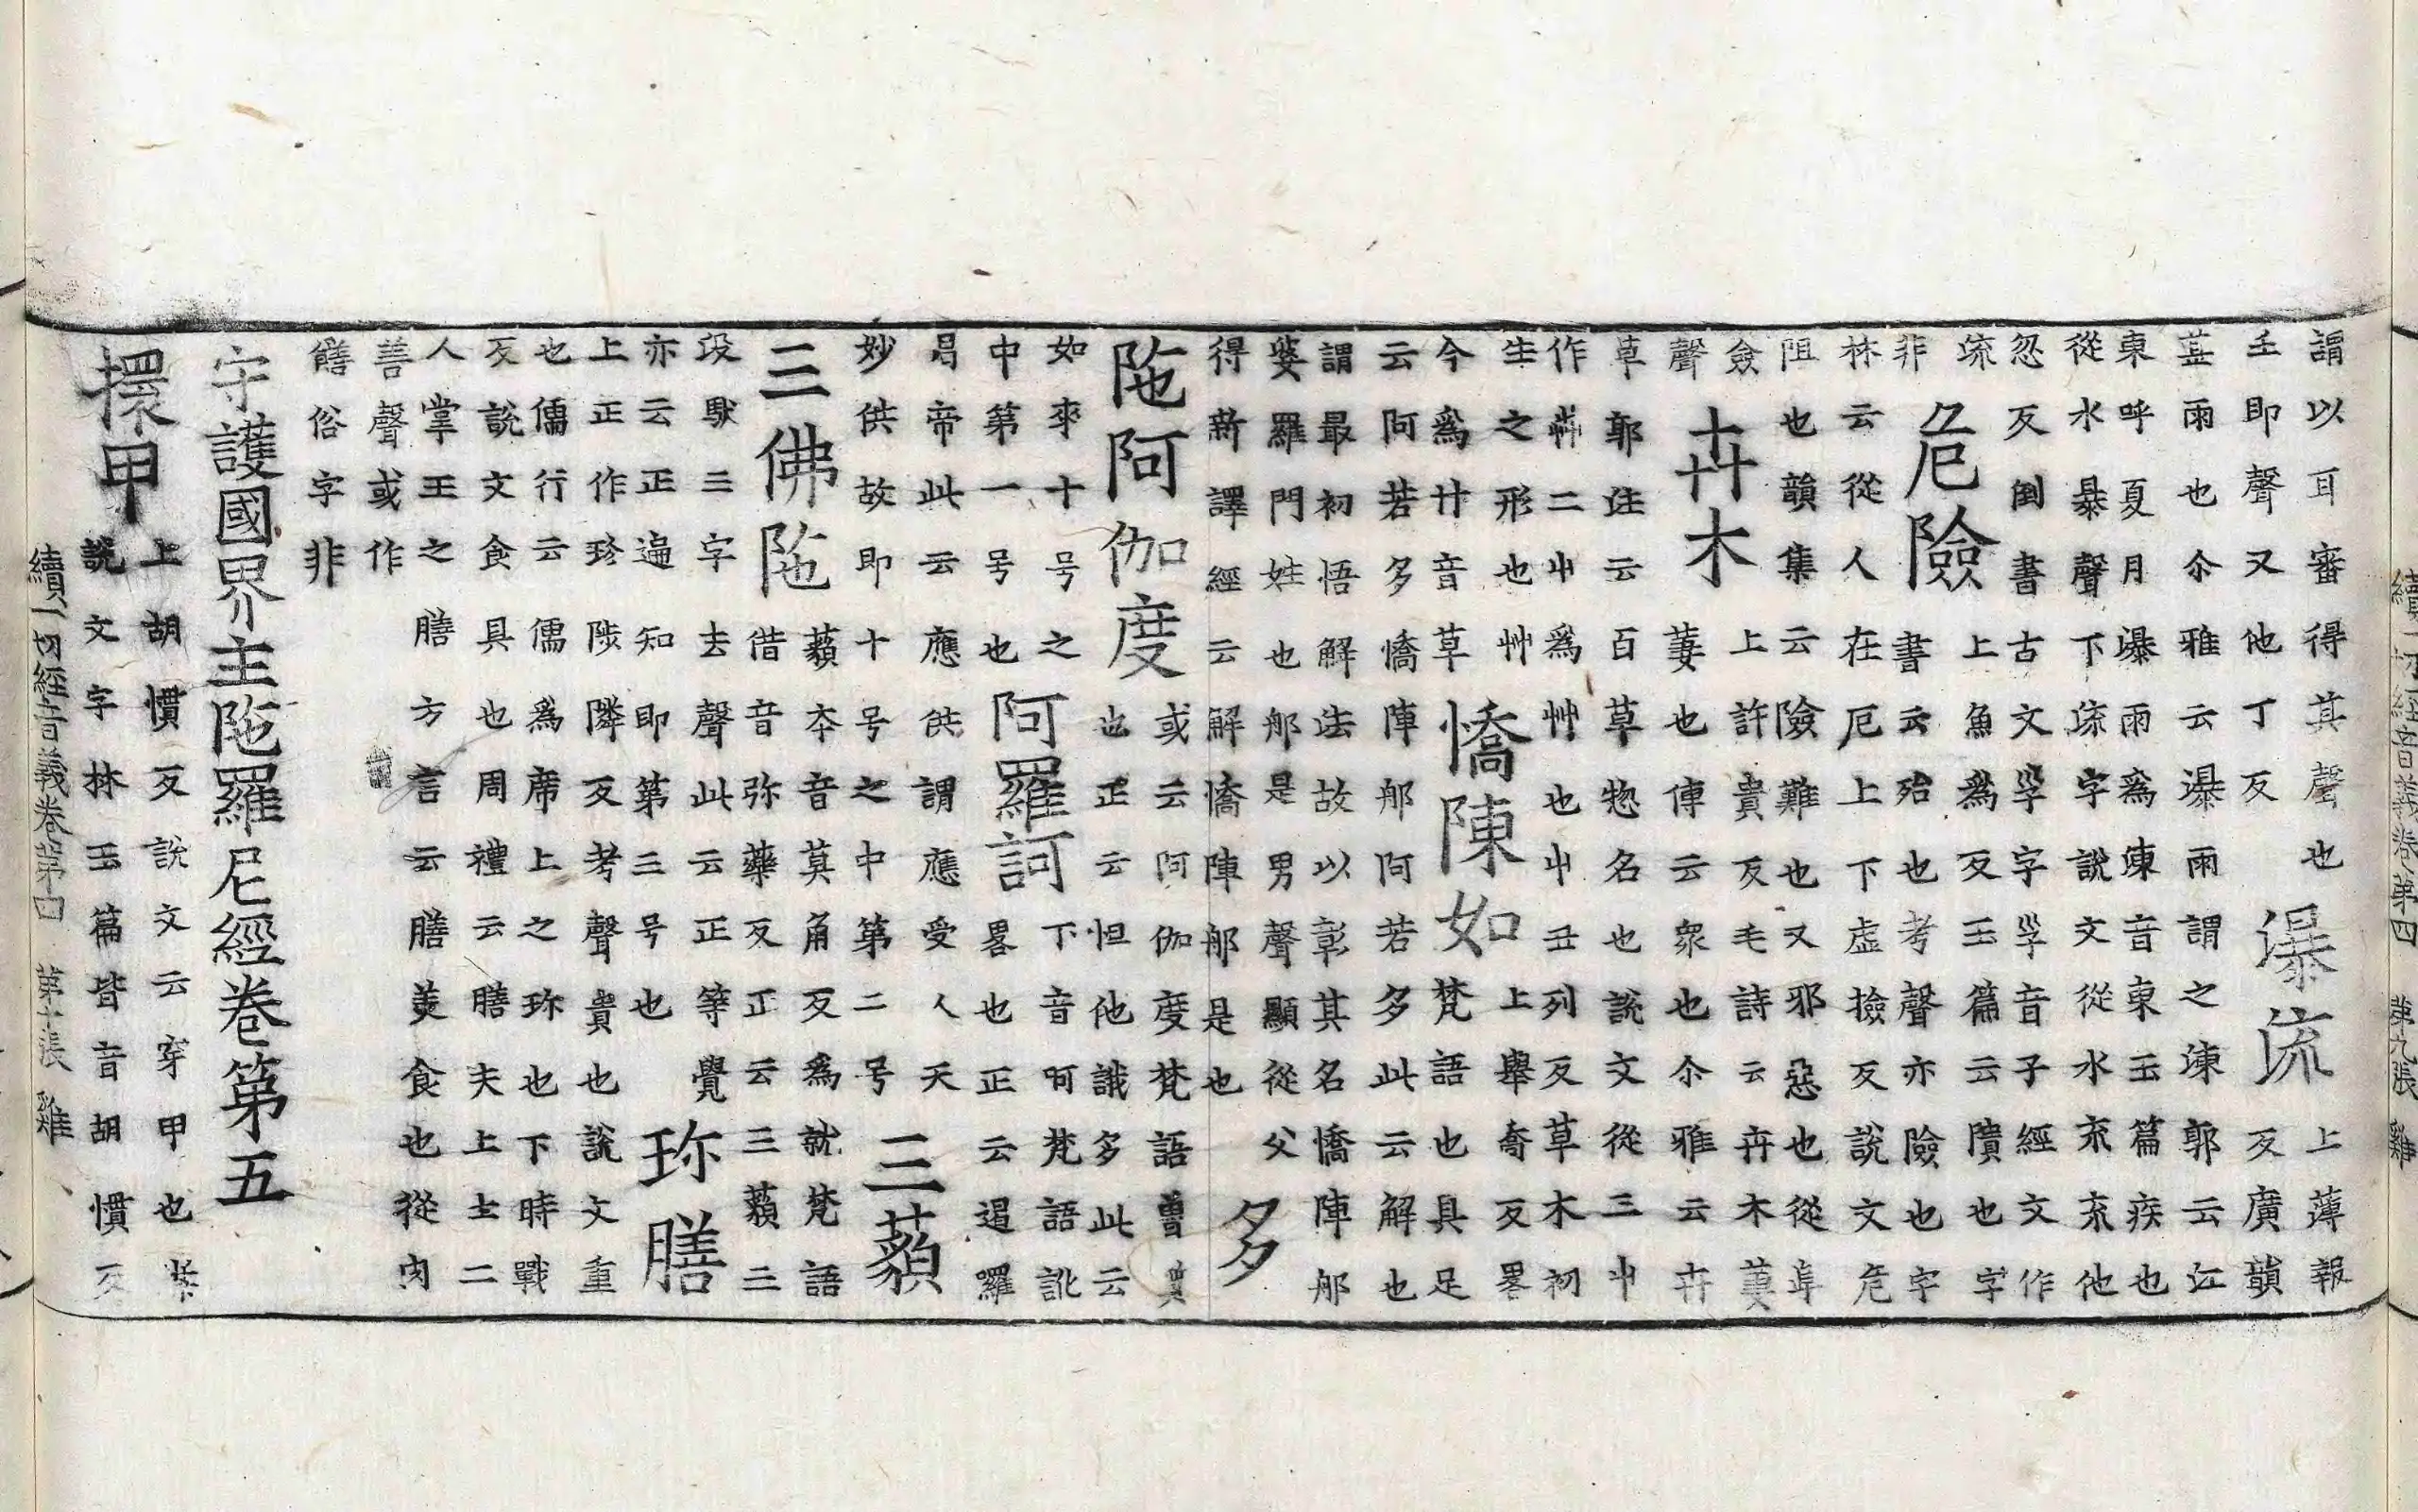 謂以耳審得其聲也
𡈼即聲又他丁反
瀑流
上薄報
反廣韻
甚雨也尒雅云瀑雨謂之涷郭云江
東呼夏月瀑雨為涷音東玉篇疾也
從水暴聲下流字說文從水㐬㐬他
忽反倒書古文𡿮字𡿮音子經文作
流
非
危險
上魚為反玉篇云隤也字
書云殆也考聲亦險也字
林云從人在厄上下虛撿反說文危
阻也韻集云險難也又邪惡也從阜
僉
聲
卉木
上許貴反毛詩云卉木萋
萋也傳云衆也尒雅云卉
草郭注云百草惣名也說文從三屮
作芔二屮為艸艸也屮丑列反草木初
生之形也艸
今為廾音草
憍陳如
上舉喬反略
梵語也具足
云阿若多憍陳那阿若多此云解也
謂最初悟解法故以彰其名憍陳那
婆羅門姓也那是男聲顯從父
得新譯經云解憍陳那是也
多
陁阿伽度
或云阿伽度梵語魯質
也正云怛他誐多此云
如來十号之
中第一号也
阿羅訶
下音呵梵語訛
略也正云遏囉
曷帝此云應供謂應受人天
妙供故即十号之中第二号
三藐
三佛陁
藐本音莫角反為就梵語
借音弥藥反正云三藐三
没馱三字去聲此云正等覺
亦云正遍知即第三号也
珎膳
上正作珍陟隣反考聲貴也說文重
也儒行云儒為席上之珎也下時戰
反說文食具也周禮云膳夫上士二
人掌王之膳方言云膳美食也從肉
善聲或作
饍俗字非
守護國界主陁羅尼經卷第五
擐甲
上胡慣反說文云穿甲也
說文字林玉篇皆音胡慣反
續一切經音義卷第四 第十張 雞
續一切經音義卷第四 第九張 雞